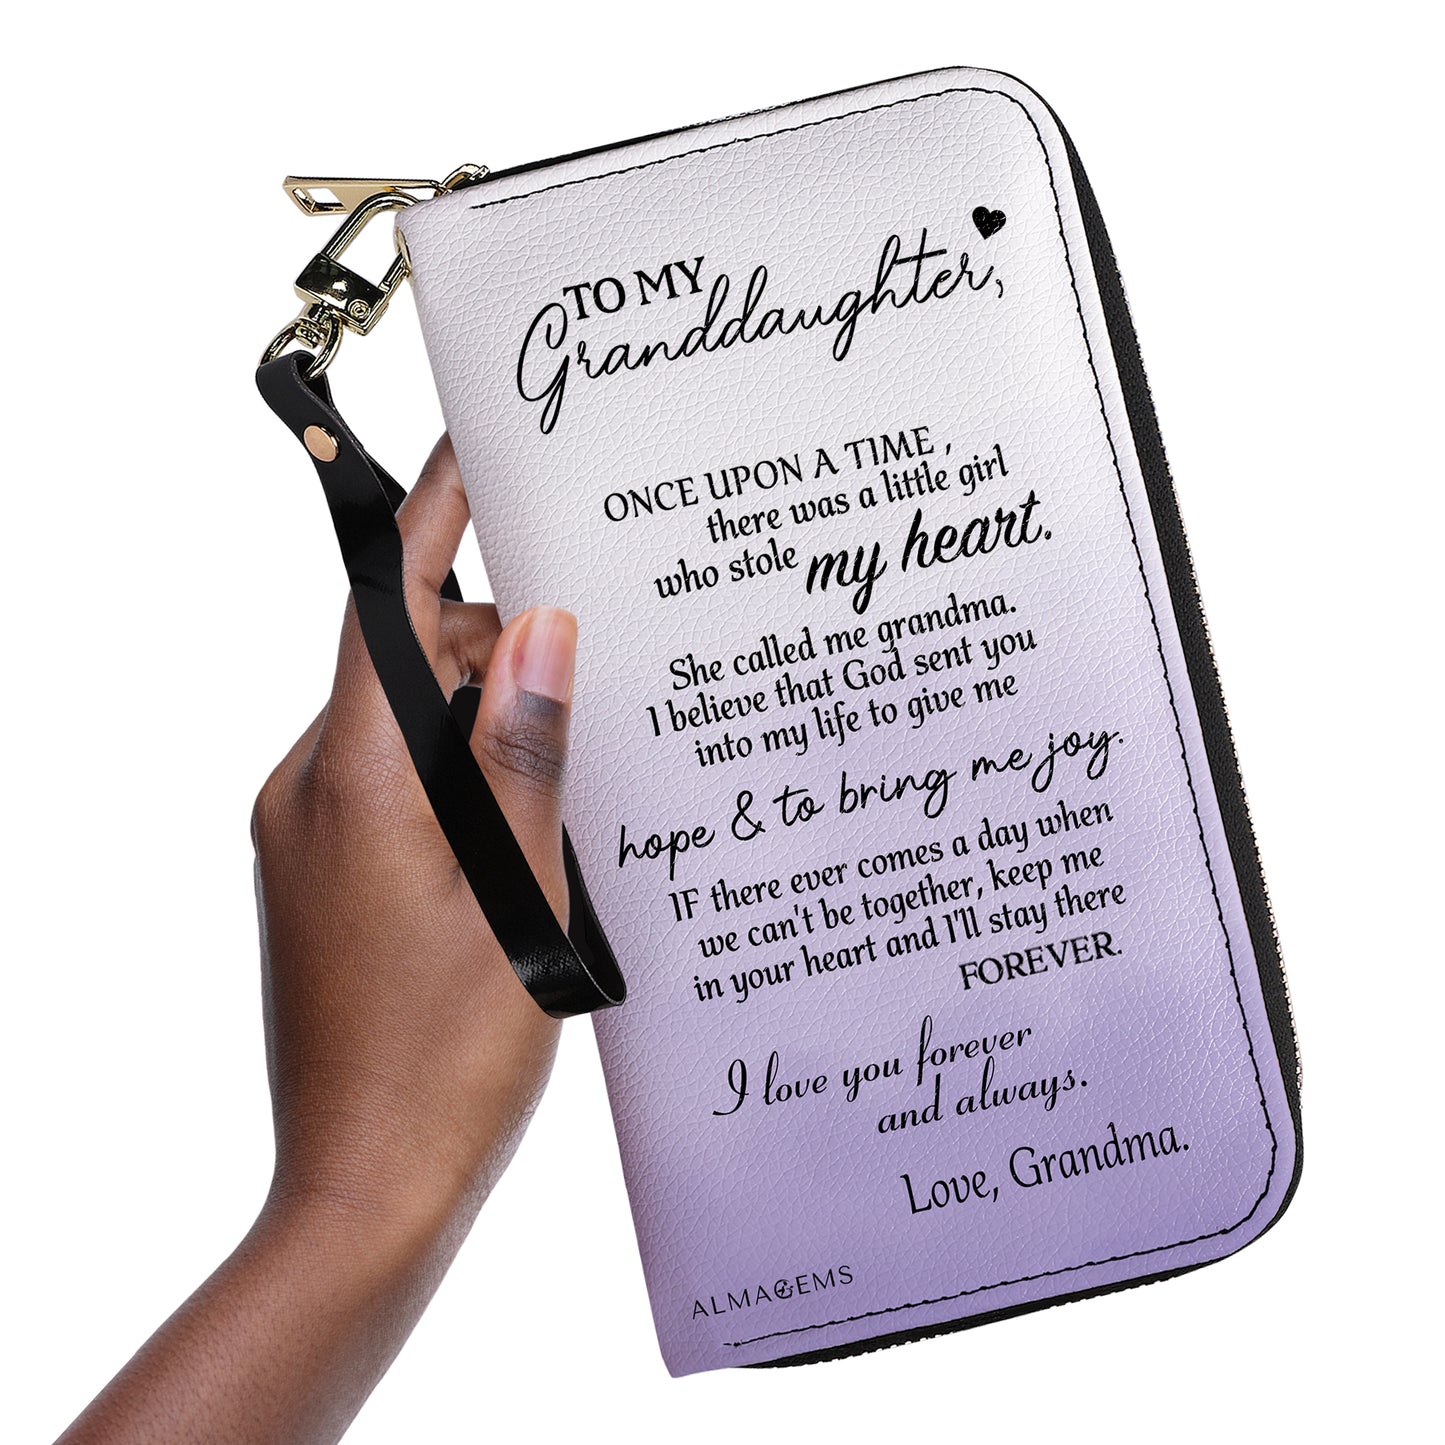 TO MY
Granddaughter,
ONCE UPON A TIME ,
there was a little girl
who stole my heart.
She called me grandma.
I believe that God sent you
into my life to give me
hope & to bring me joy.
IF there ever comes a day when
we can't be together, keep me
in your heart and I'll stay there
FOREVER.
I love you forever
and always.
Love, Grandma.
ALMAGEMS